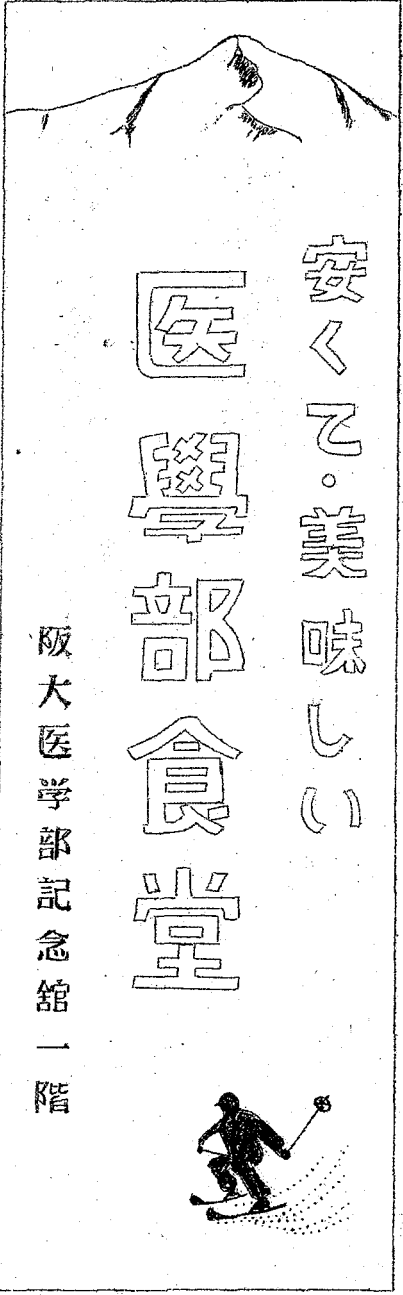 安くて・美味しい
医學部食堂
阪大医学部記念舘一階